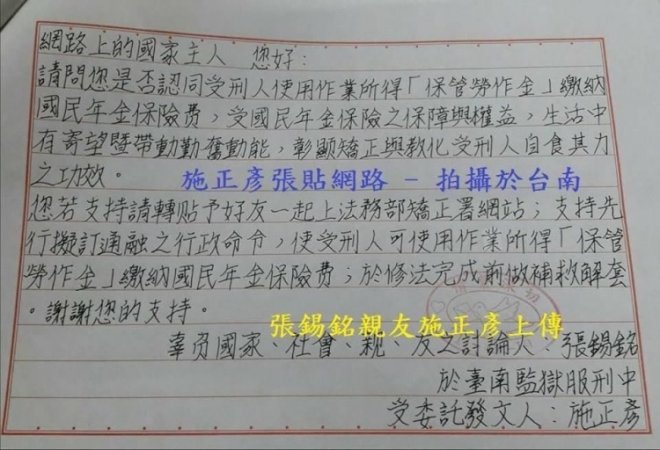 網路上的國家主人　您好：
請問您是否認同受刑人使用作業所得「保管勞作金」繳納
國民年金保險費，受國民年金保險之保障與權益，生活中
有寄望暨帶動勤奮動能，彰顯矯正與教化受刑人自食其力
之功效。
施正彥張貼網路 – 拍攝於台南
您若支持請轉貼予好友一起上法務部矯正署網站；支持先
行擬訂通融之行政命令，使受刑人可使用作業所得「保管
勞作金」繳納國民年金保險費；於修法完成前做補救解套
。謝謝您的支持。
張錫銘親友施正彥上傳
辜負國家、社會、親、友之討論人：張錫銘
於臺南監獄服刑中
受委託發文人：施正彥